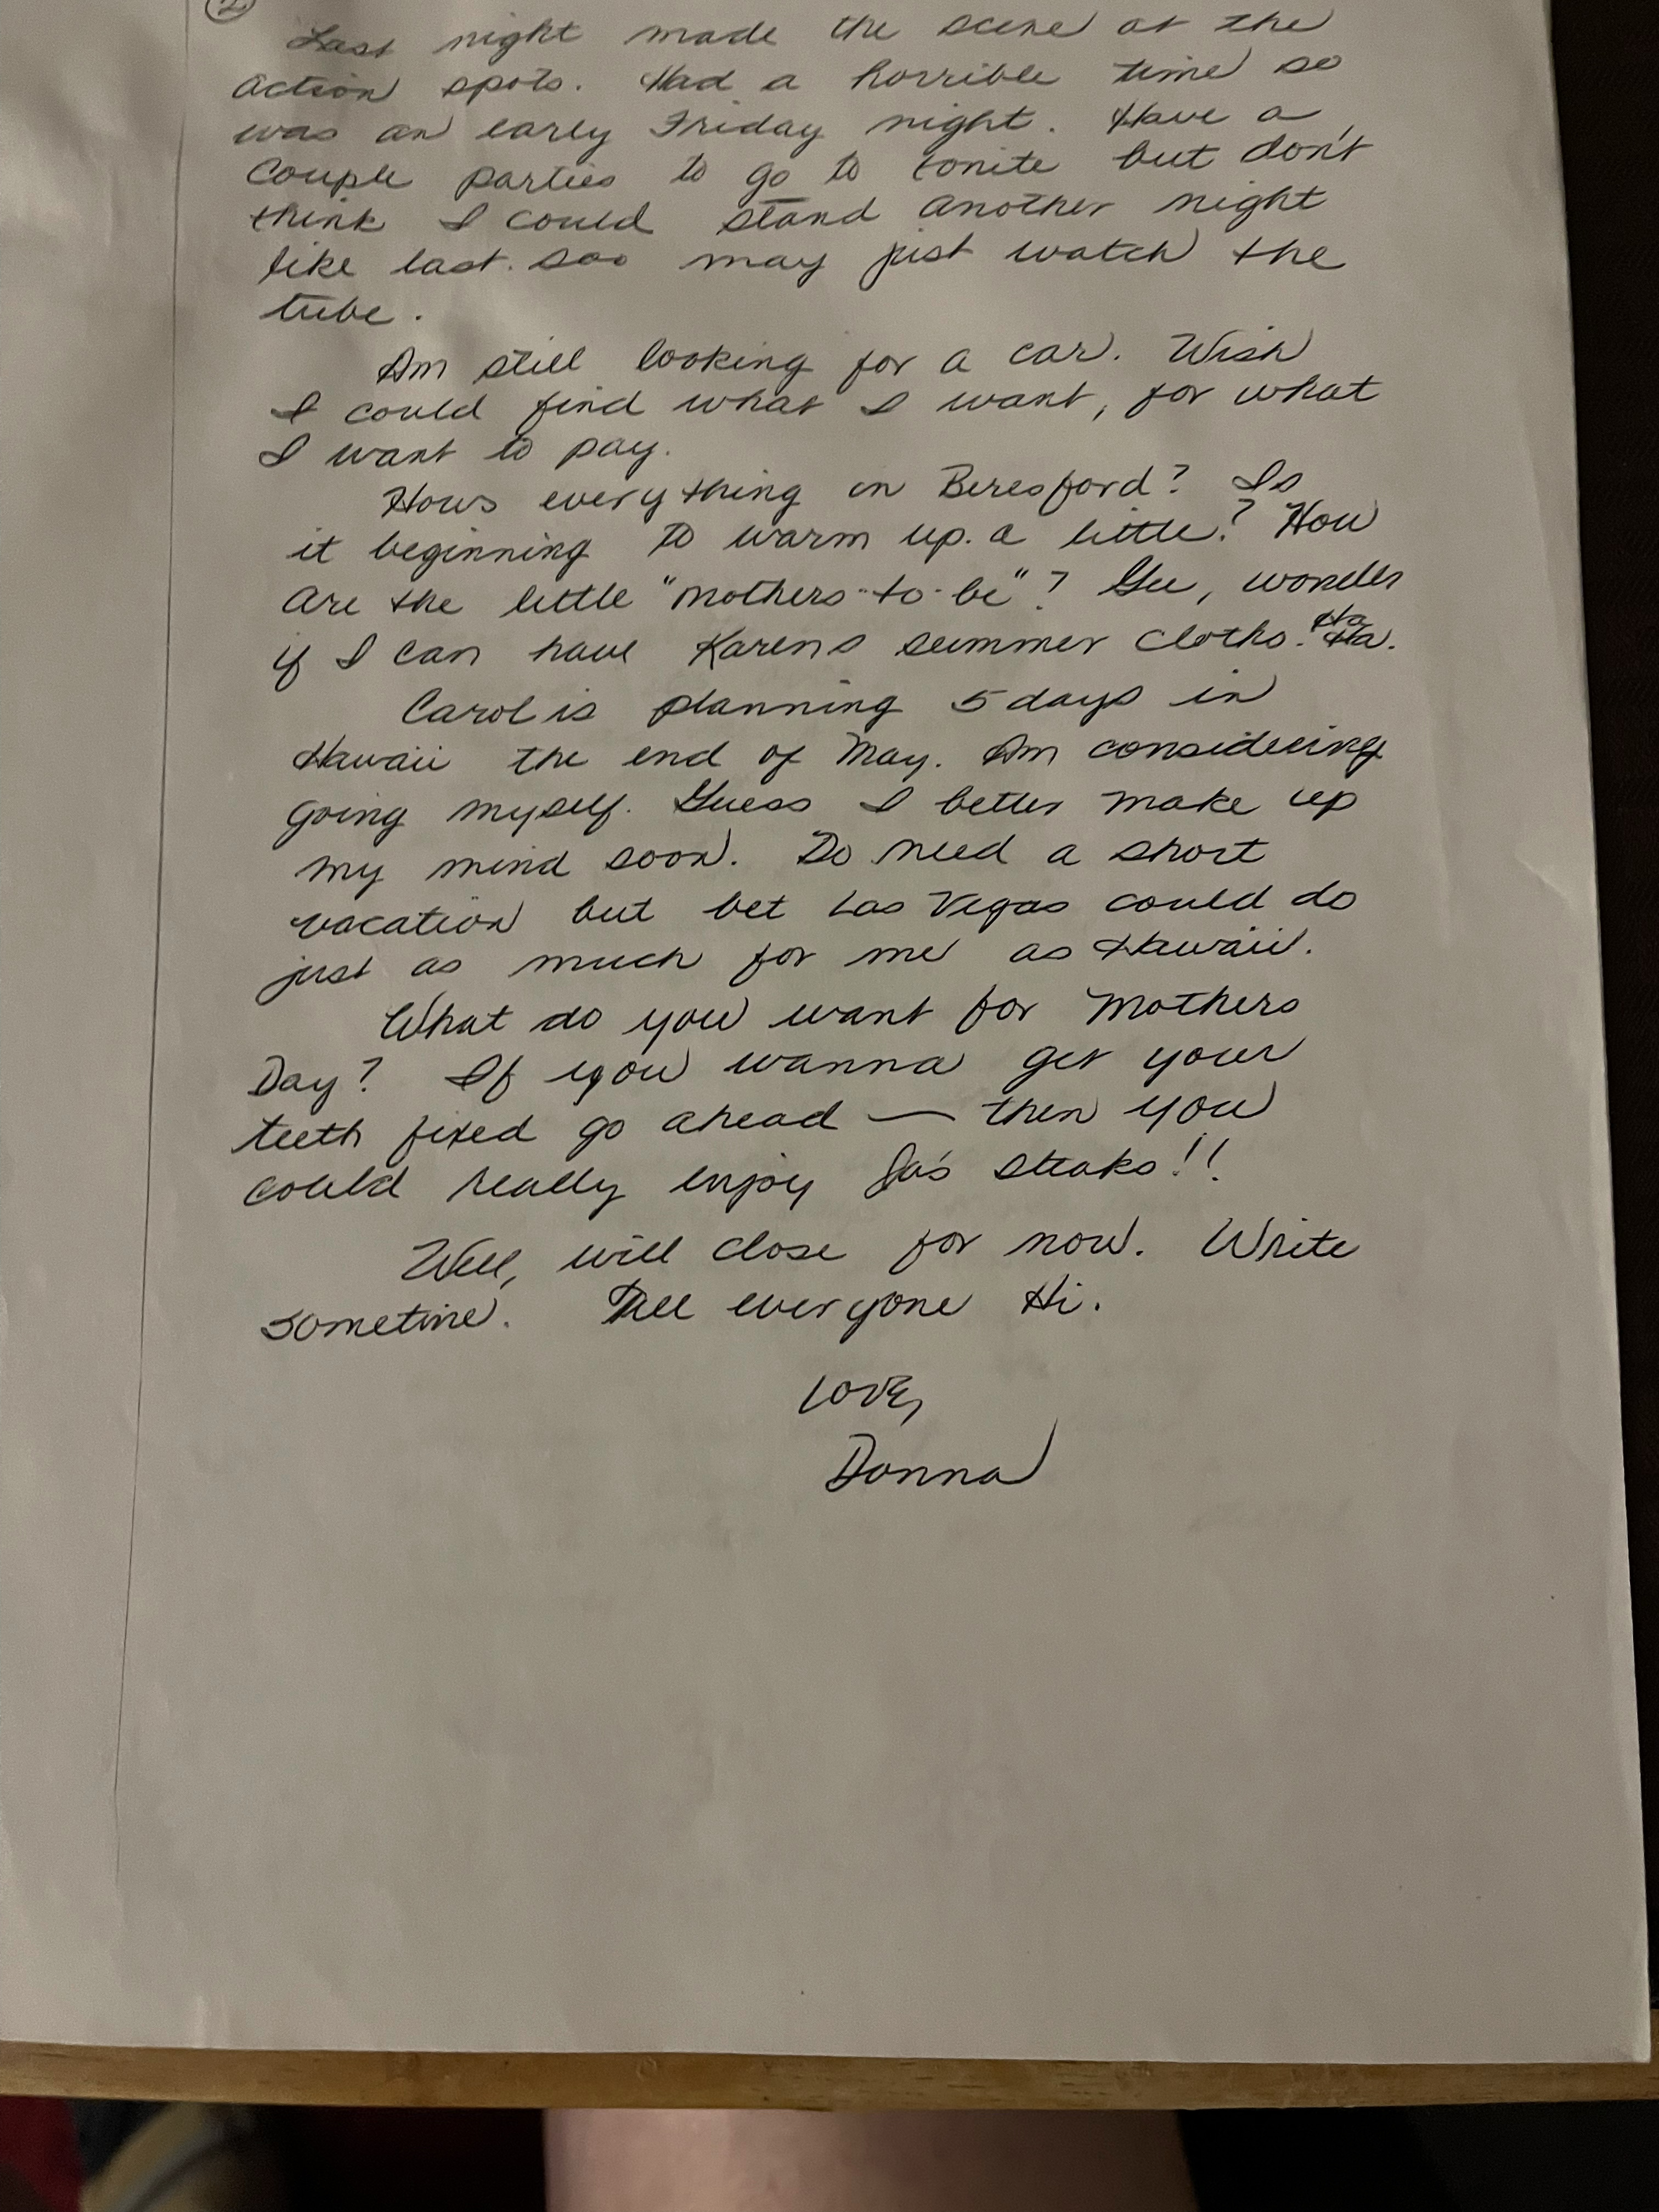 2
Last night made the scene at the
action spots. Had a horrible time so
was an early Friday night. Have a
couple parties to go to tonite but don't
think I could stand another night
like last. soo may just watch the
tube.
Am still looking for a car. Wish
I could find what I want, for what
I want to pay.
Hows everything in Beresford? Is
it beginning to warm up a little? How
are the little "mothers-to-be"? Gee, wonder
if I can have Karens summer cloths. Ha
Ha.
Carol is planning 5 days in
Hawaii the end of May. Am considering
going myself. Guess I better make up
my mind soon. Do need a short
vacation but bet Las Vegas could do
just as much for me as Hawaii.
What do you want for Mothers
Day? If you wanna get your
teeth fixed go ahead — then you
could really enjoy steaks!!
Well, will close for now. Write
sometime. Tell everyone Hi.
Love,
Donna